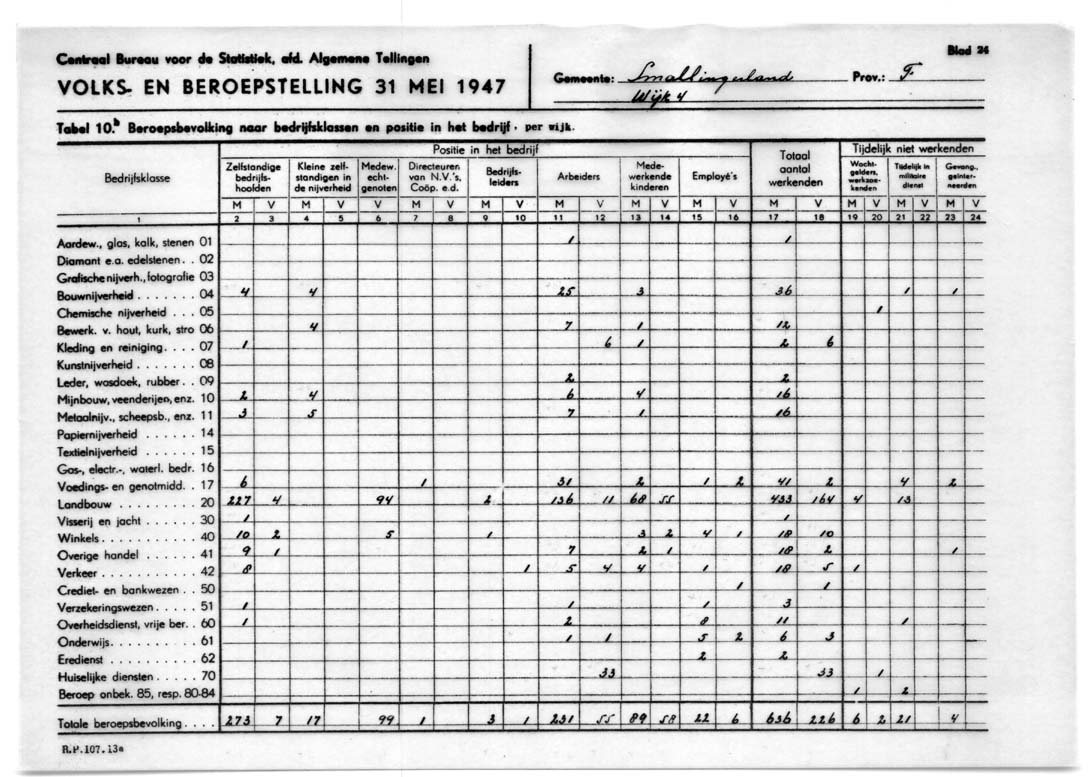 Centraal Bureau voor de Statistiek, afd. Algemene Tellingen
Blad 24
VOLKS- EN BEROEPSTELLING 31 MEI 1947
Gemeente: Smallingerland Prov.: F.
Wijk 4
Tabel 10.b Beroepsbevolking naar bedrijfsklassen en positie in het bedrijf, per wijk.
Bedrijfsklasse Positie in het bedrijf Totaal aantal werkenden Tijdelijk niet werkenden
Zelfstandige bedrijfshoofden Kleine zelfstandigen in de nijverheid Medew. echtgenoten Directeuren van N.V.'s, Coöp. e.d. Bedrijfsleiders Arbeiders Medewerkende kinderen Employé's Wachtgelders, werkzoekenden Tijdelijk in militaire dienst Gevang., geïnterneerden
M V M V V M V M V M V M V M V M V M V M V M V
1 2 3 4 5 6 7 8 9 10 11 12 13 14 15 16 17 18 19 20 21 22 23 24
Aardew., glas, kalk, stenen 01 1 1
Diamant e.a. edelstenen . . 02
Grafische nijverh., fotografie 03
Bouwnijverheid . . . . . . . 04 4 4 25 3 36 1 1
Chemische nijverheid . . . 05 1
Bewerk. v. hout, kurk, stro 06 4 7 1 12
Kleding en reiniging. . . . 07 1 6 1 2 6
Kunstnijverheid . . . . . . 08
Leder, wasdoek, rubber . . 09 2 2
Mijnbouw, veenderijen, enz. 10 2 4 6 4 16
Metaalnijv., scheepsb., enz. 11 3 5 7 1 16
Papiernijverheid . . . . . . 14
Textielnijverheid . . . . . . 15
Gas-, electr.-, waterl. bedr. 16
Voedings- en genotmidd. . . 17 6 1 31 2 1 2 41 2 4 2
Landbouw . . . . . . . . . 20 227 4 94 2 136 11 68 55 433 164 4 13
Visserij en jacht . . . . . . 30 1 1
Winkels . . . . . . . . . . 40 10 2 5 1 3 2 4 1 18 10
Overige handel . . . . . . 41 9 1 7 2 1 18 2 1
Verkeer . . . . . . . . . . 42 8 1 5 4 4 1 18 5 1
Crediet- en bankwezen . . 50 1 1
Verzekeringswezen . . . . . 51 1 1 1 3
Overheidsdienst, vrije ber. . 60 1 2 8 11 1
Onderwijs . . . . . . . . . 61 1 1 5 2 6 3
Eredienst . . . . . . . . . 62 2 2
Huiselijke diensten . . . . . 70 33 33 1
Beroep onbek. 85, resp. 80-84 1 2
Totale beroepsbevolking . . . . 273 7 17 99 1 3 1 231 55 89 58 22 6 636 226 6 2 21 4
R.P.107.13a